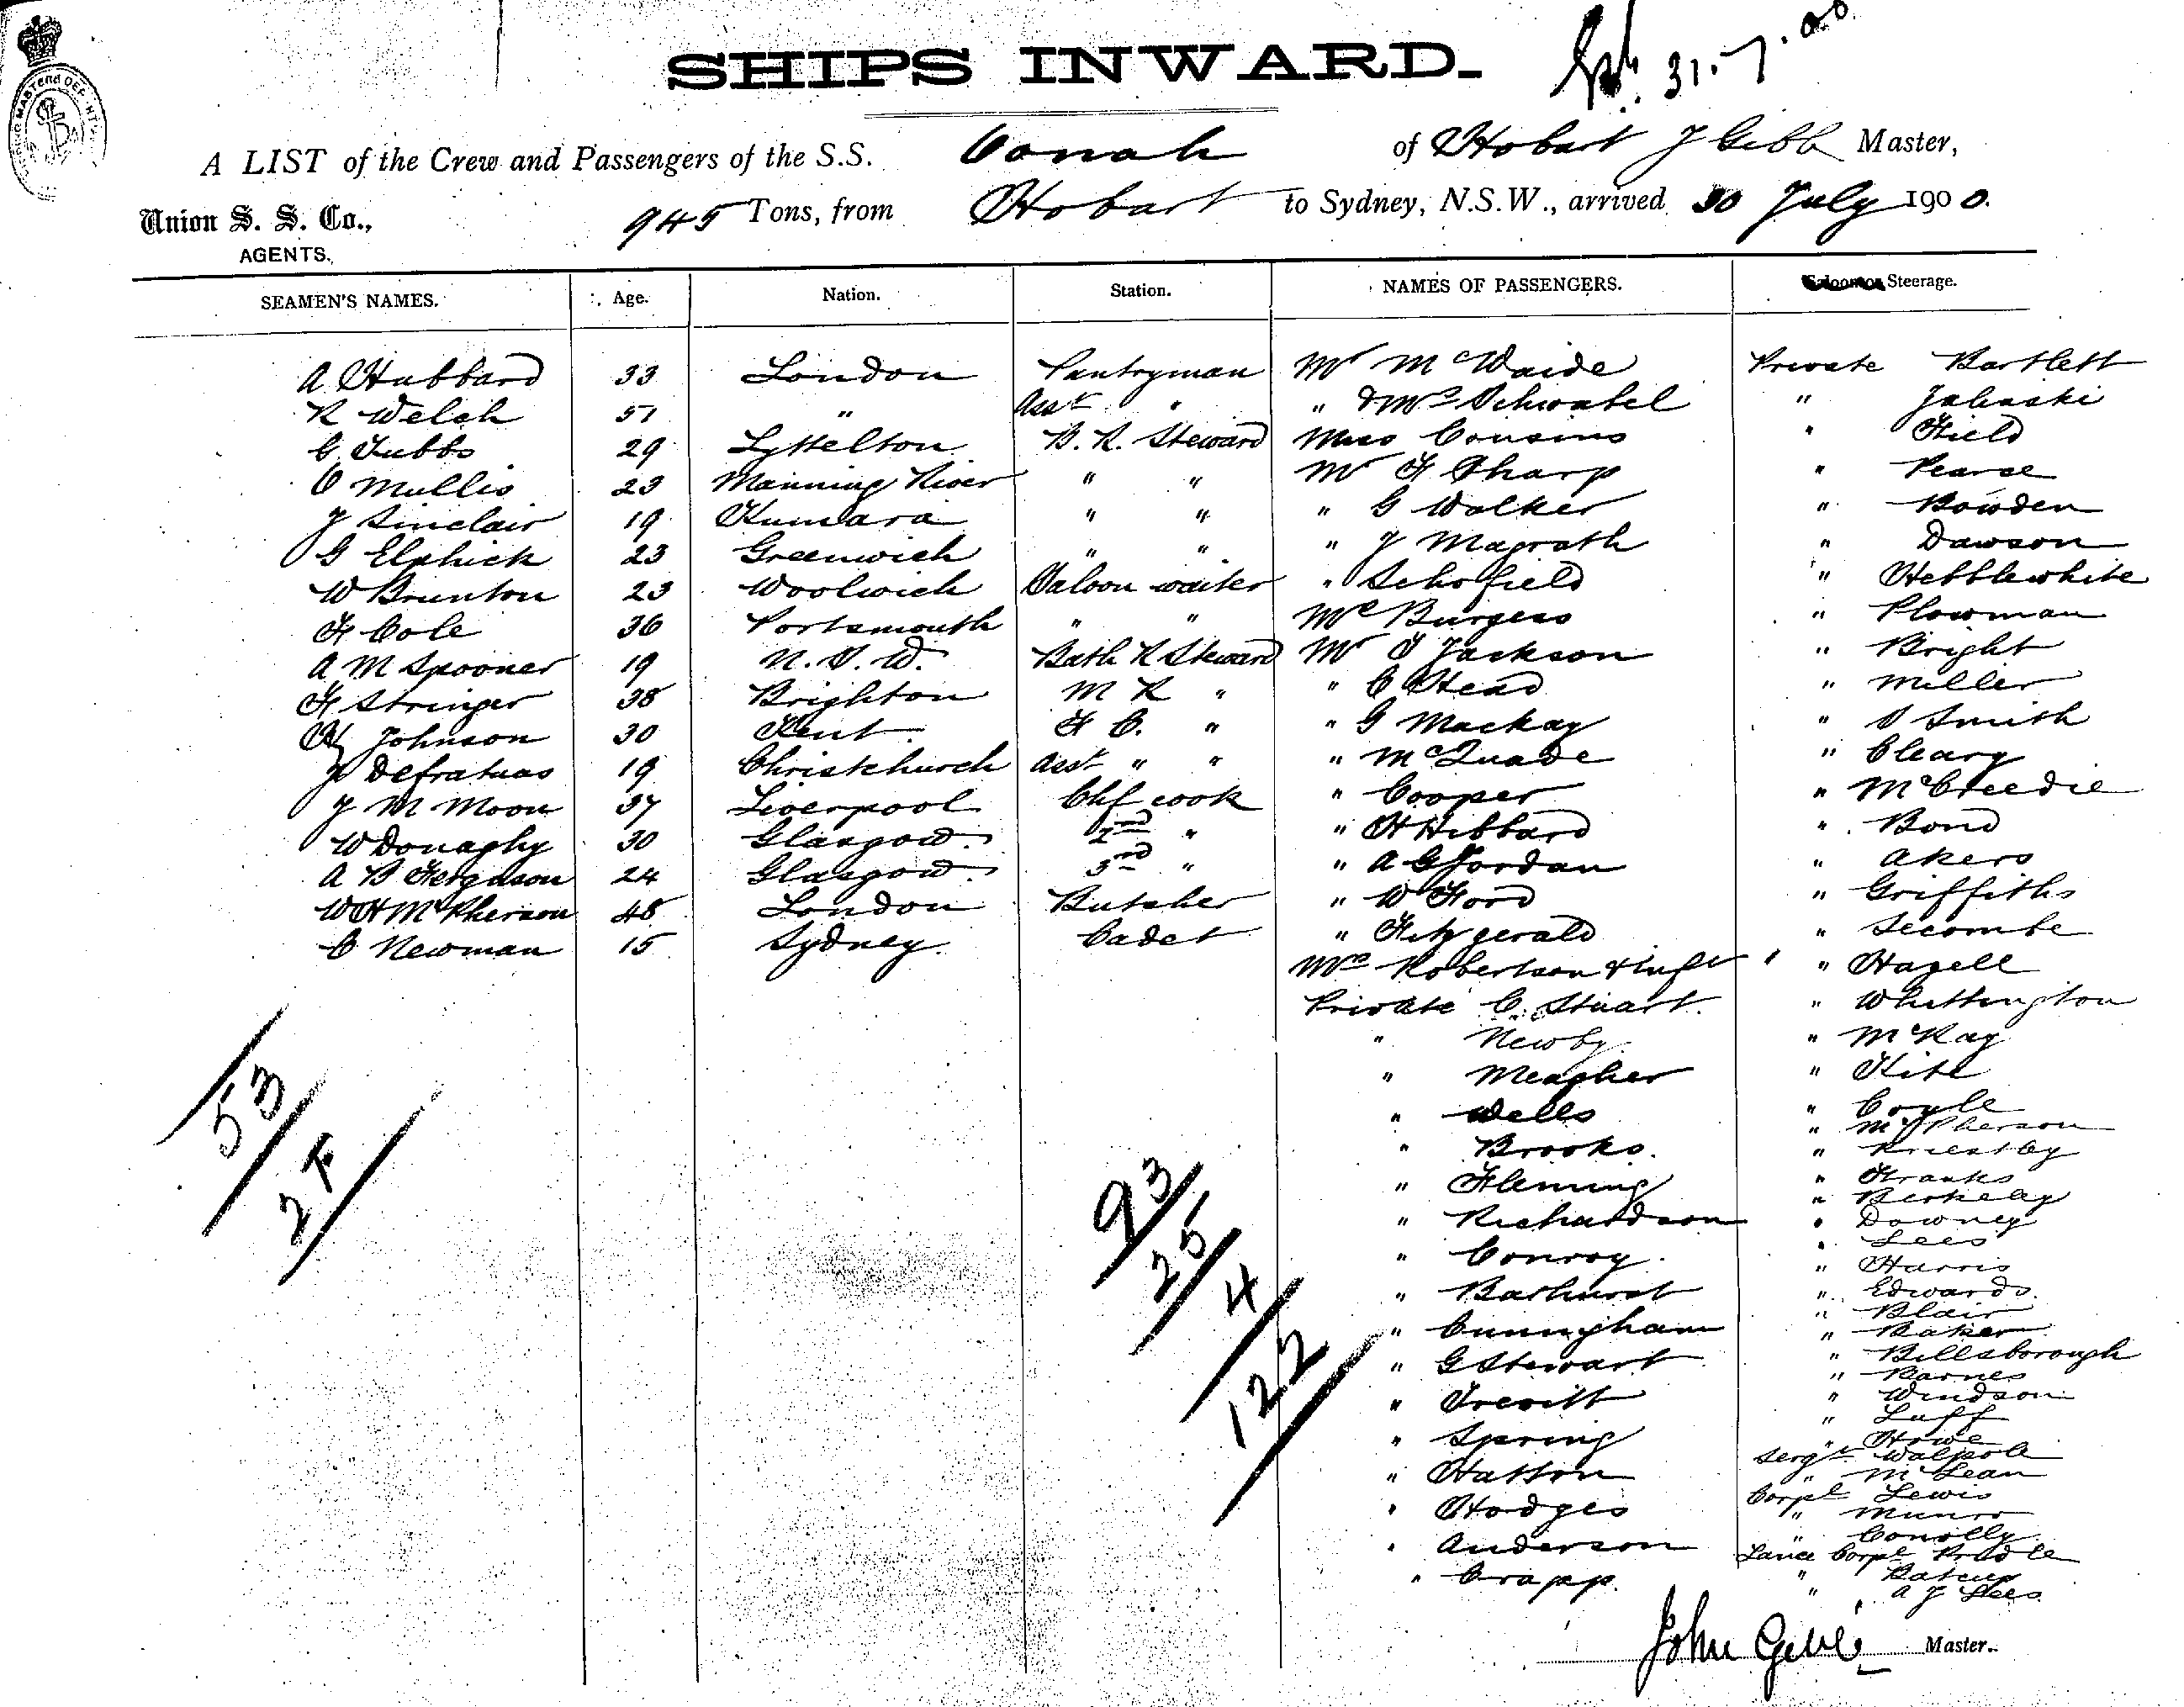 SHIPS INWARD.
31.7.00
A LIST of the Crew and Passengers of the S.S. Oonah of Hobart J Gibb Master,
Union S. S. Co., AGENTS. 945 Tons, from Hobart to Sydney, N.S.W., arrived 30 July 1900.
SEAMEN'S NAMES. Age. Nation. Station. NAMES OF PASSENGERS. Saloon or Steerage.
A Hubbard 33 London Pantryman Mr McWaide Private Bartlett
R Welch 51 " Asst " " & Mrs Schwabel "
G Tubbs 29 Lyttelton B. R. Steward Miss Cousins " Field
C Mullis 23 Manning River " " Mr F Sharp " Pearse
J Sinclair 19 Kumara " " " G Walker " Bowden
G Elphick 23 Greenwich " " " J Magrath " Dawson
W Brunton 23 Woolwich Saloon waiter " Schofield " Hebblewhite
F Cole 36 Portsmouth " " Burgess " Plowman
A M Spooner 19 N. S. W. Bath R Steward Mr J Jackson " Bright
F Stringer 38 Brighton M R " " C Head " Miller
Hy Johnson 30 Kent F C. " " G Mackay " S Smith
19 Christchurch Asst " " " McQuade " Cleary
J M Moon 37 Liverpool Chf cook " Cooper " McCreedie
W Donaghy 30 Glasgow 2nd " " H Hibbard " Bond
A B Ferguson 24 Glasgow 3rd " " A G Jordan " Akers
W H McPherson 48 London Butcher " W Ford " Griffiths
C Newman 15 Sydney Cadet " Fitzgerald " Secombe
Mrs Robertson & Inft " " Hazell
Private C. Stuart. " Whittington
" Newby. " McKay
" Meagher " Kite
" Wells " Coyle
" McPherson
" Brooks. " Priestley
" Fleming " Franks
" Berkeley
" Richardson " Downey
" Lees
" Conroy. " Harris
" Bathurst " Edwards.
" Blair
" Cunningham " Baker
" G Stewart " Billsborough
" Barnes
" Trevitt " Windson
" Luff
" Spring " Howe
Sergt Walpole
" Hatton " McLean
Corpl Lewis
" Hodges " Munro
" Conolly
" Anderson Lance Corpl
" Crapp. "
" A J Lees
53
2F
93
25
4
122
John Gibb Master.